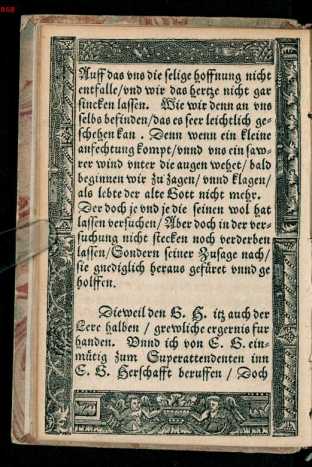 Auff das vns die selige hoffnung nicht
entfalle/vnd wir das hertze nicht gar
sincken lassen. Wie wir denn an vns
selbs befinden/das es seer leichtlich ge-
schehen kan. Denn wenn ein kleine
anfechtung kompt/vnnd vns ein saw-
rer wind vnter die augen wehet/bald
beginnen wir zu zagen/vnnd klagen/
als lebte der alte Gott nicht mehr.
Der doch je vnd je die seinen wol hat
lassen versuchen/Aber doch in der ver-
suchung nicht stecken noch verderben
lassen/Sondern seiner Zusage nach/
sie gnediglich heraus gefüret vnnd ge
holffen.
Dieweil den E. G. itz auch der
Lere halben/grewliche ergernis fur
handen. Vnnd ich von E. G. ein-
mütig zum Superattendenten inn
E. G. Herschafft beruffen/Doch